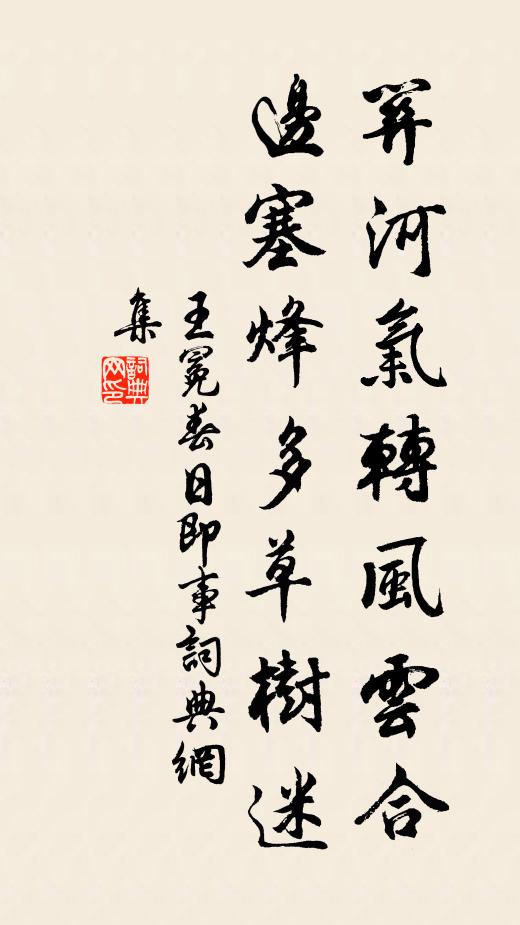 關河氣轉風雲合
邊塞烽多草樹迷
王冕春日即事詞典網
集
詞典
网印